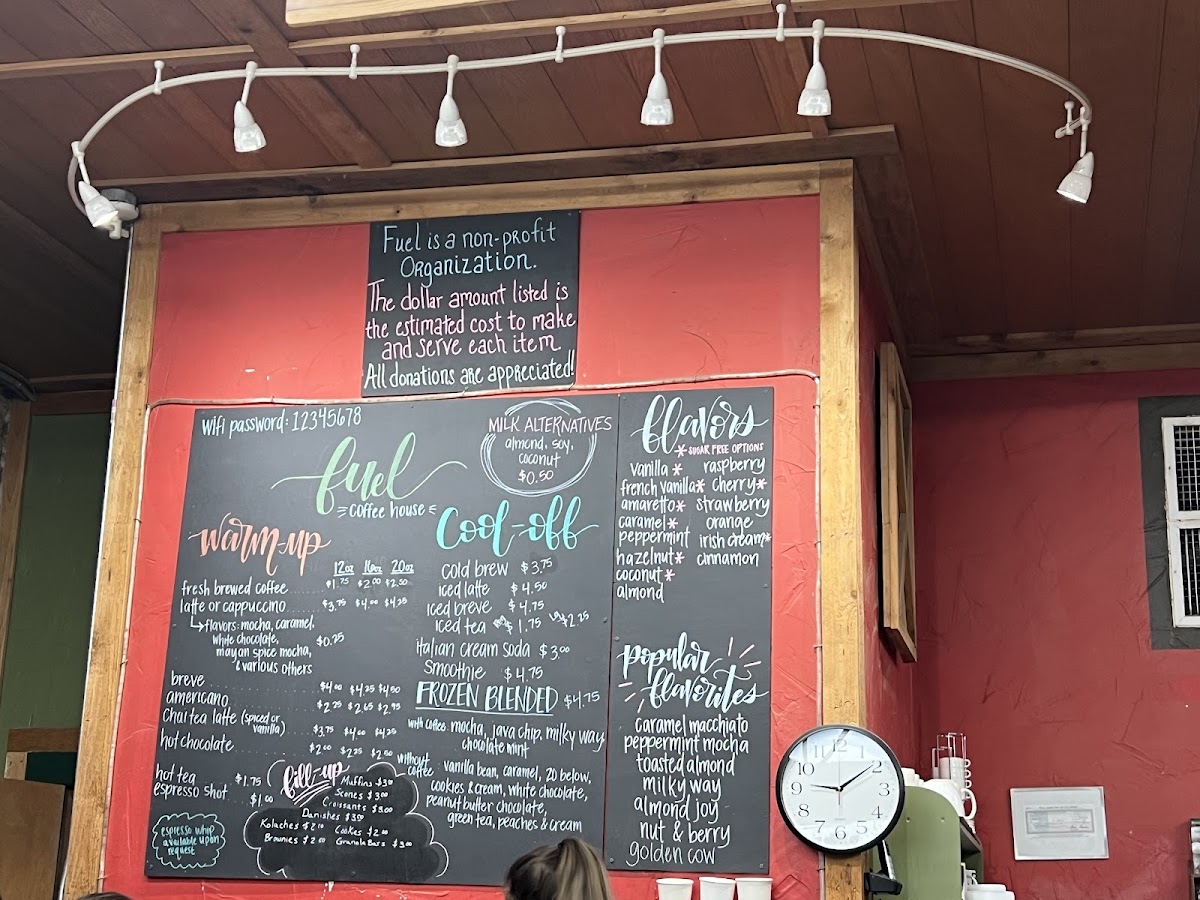 Fuel is a non-profit
Organization.
The dollar amount listed is
the estimated cost to make
and serve each item.
All donations are appreciated!
wifi password: 12345678
fuel
coffee house
MILK ALTERNATIVES
almond, soy,
coconut
$0.50
warm-up
12oz 16oz 20oz
fresh brewed coffee $1.75 $2.00 $2.50
latte or cappuccino $3.75 $4.00 $4.25
flavors: mocha, caramel,
white chocolate, $0.25
mayan spice mocha,
& various others
breve $4.00 $4.25 $4.50
americano $2.25 $2.65 $2.95
Chai tea latte (spiced or
vanilla) $3.75 $4.00 $4.25
hot chocolate $2.00 $2.25 $2.50
hot tea $1.75
espresso shot $1.00
espresso whip
available upon
request
fill-up
Muffins
Scones $3.00
Croissants $3.00
Danishes
Kolaches Cookies $2.00
Brownies Granola Bars $3.00
Cool-off
cold brew $3.75
iced latte $4.50
iced breve $4.75
iced tea $1.75 $2.25
italian cream soda $3.00
Smoothie $4.75
FROZEN BLENDED $4.75
with coffee: mocha, java chip, milky way
chocolate mint
without
coffee: vanilla bean, caramel, 20 below,
cookies & cream, white chocolate,
peanut butter chocolate,
green tea, peaches & cream
flavors
* SUGAR FREE OPTIONS
vanilla * raspberry
french vanilla* cherry*
amaretto* strawberry
caramel* orange
peppermint irish cream*
hazelnut* cinnamon
coconut*
almond
popular
flavorites
caramel macchiato
peppermint mocha
toasted almond
milky way
almond joy
nut & berry
golden cow
12
11 1
10 2
9 3
8 4
7 5
6